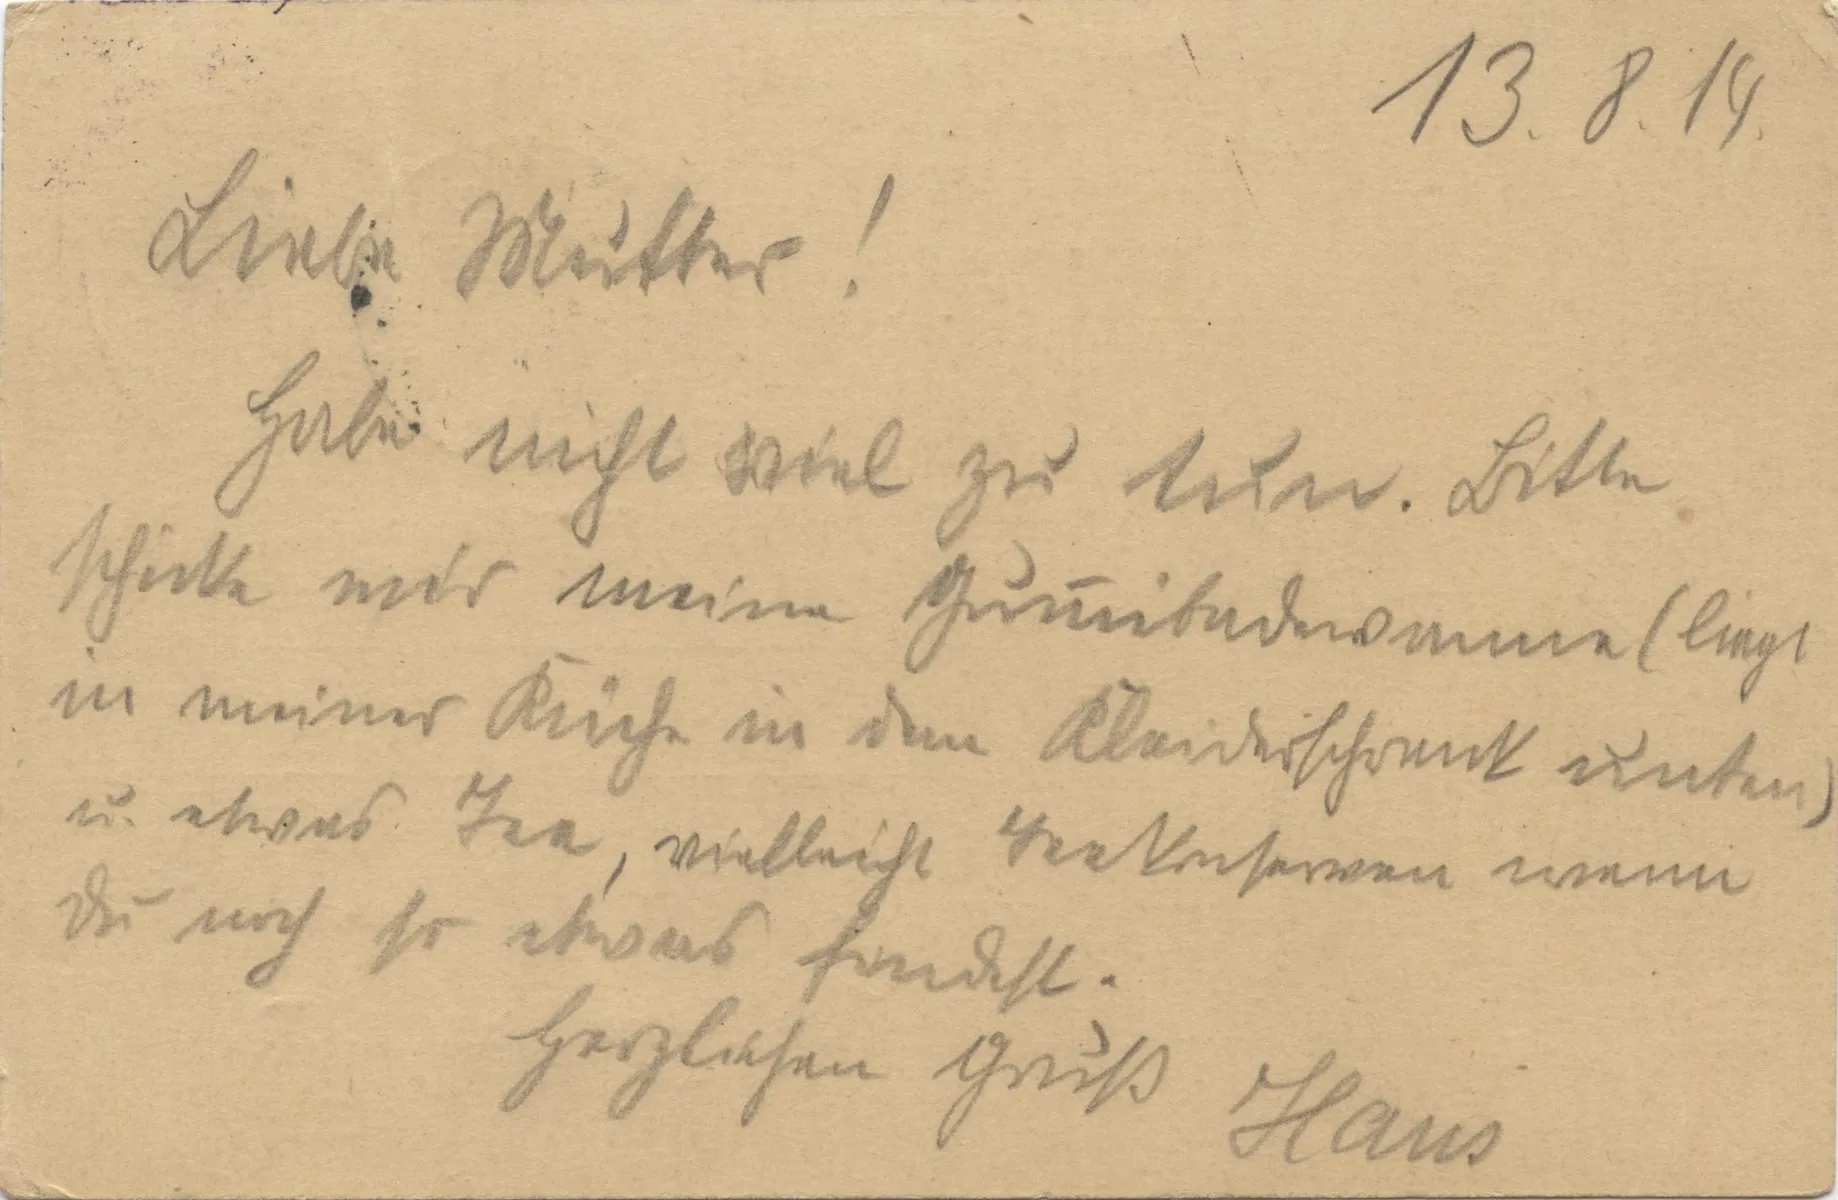 13. 8. 14.
Liebe Mutter!
Habe nicht viel zu tun. Bitte
schicke mir meine Gum̄ibadewanne (liegt
in meiner Küche in dem Kleiderschrank unten)
u. etwas Tee, vielleicht Teekonserven wenn
Du noch so etwas fändest.
Herzlichen Gruß Hans